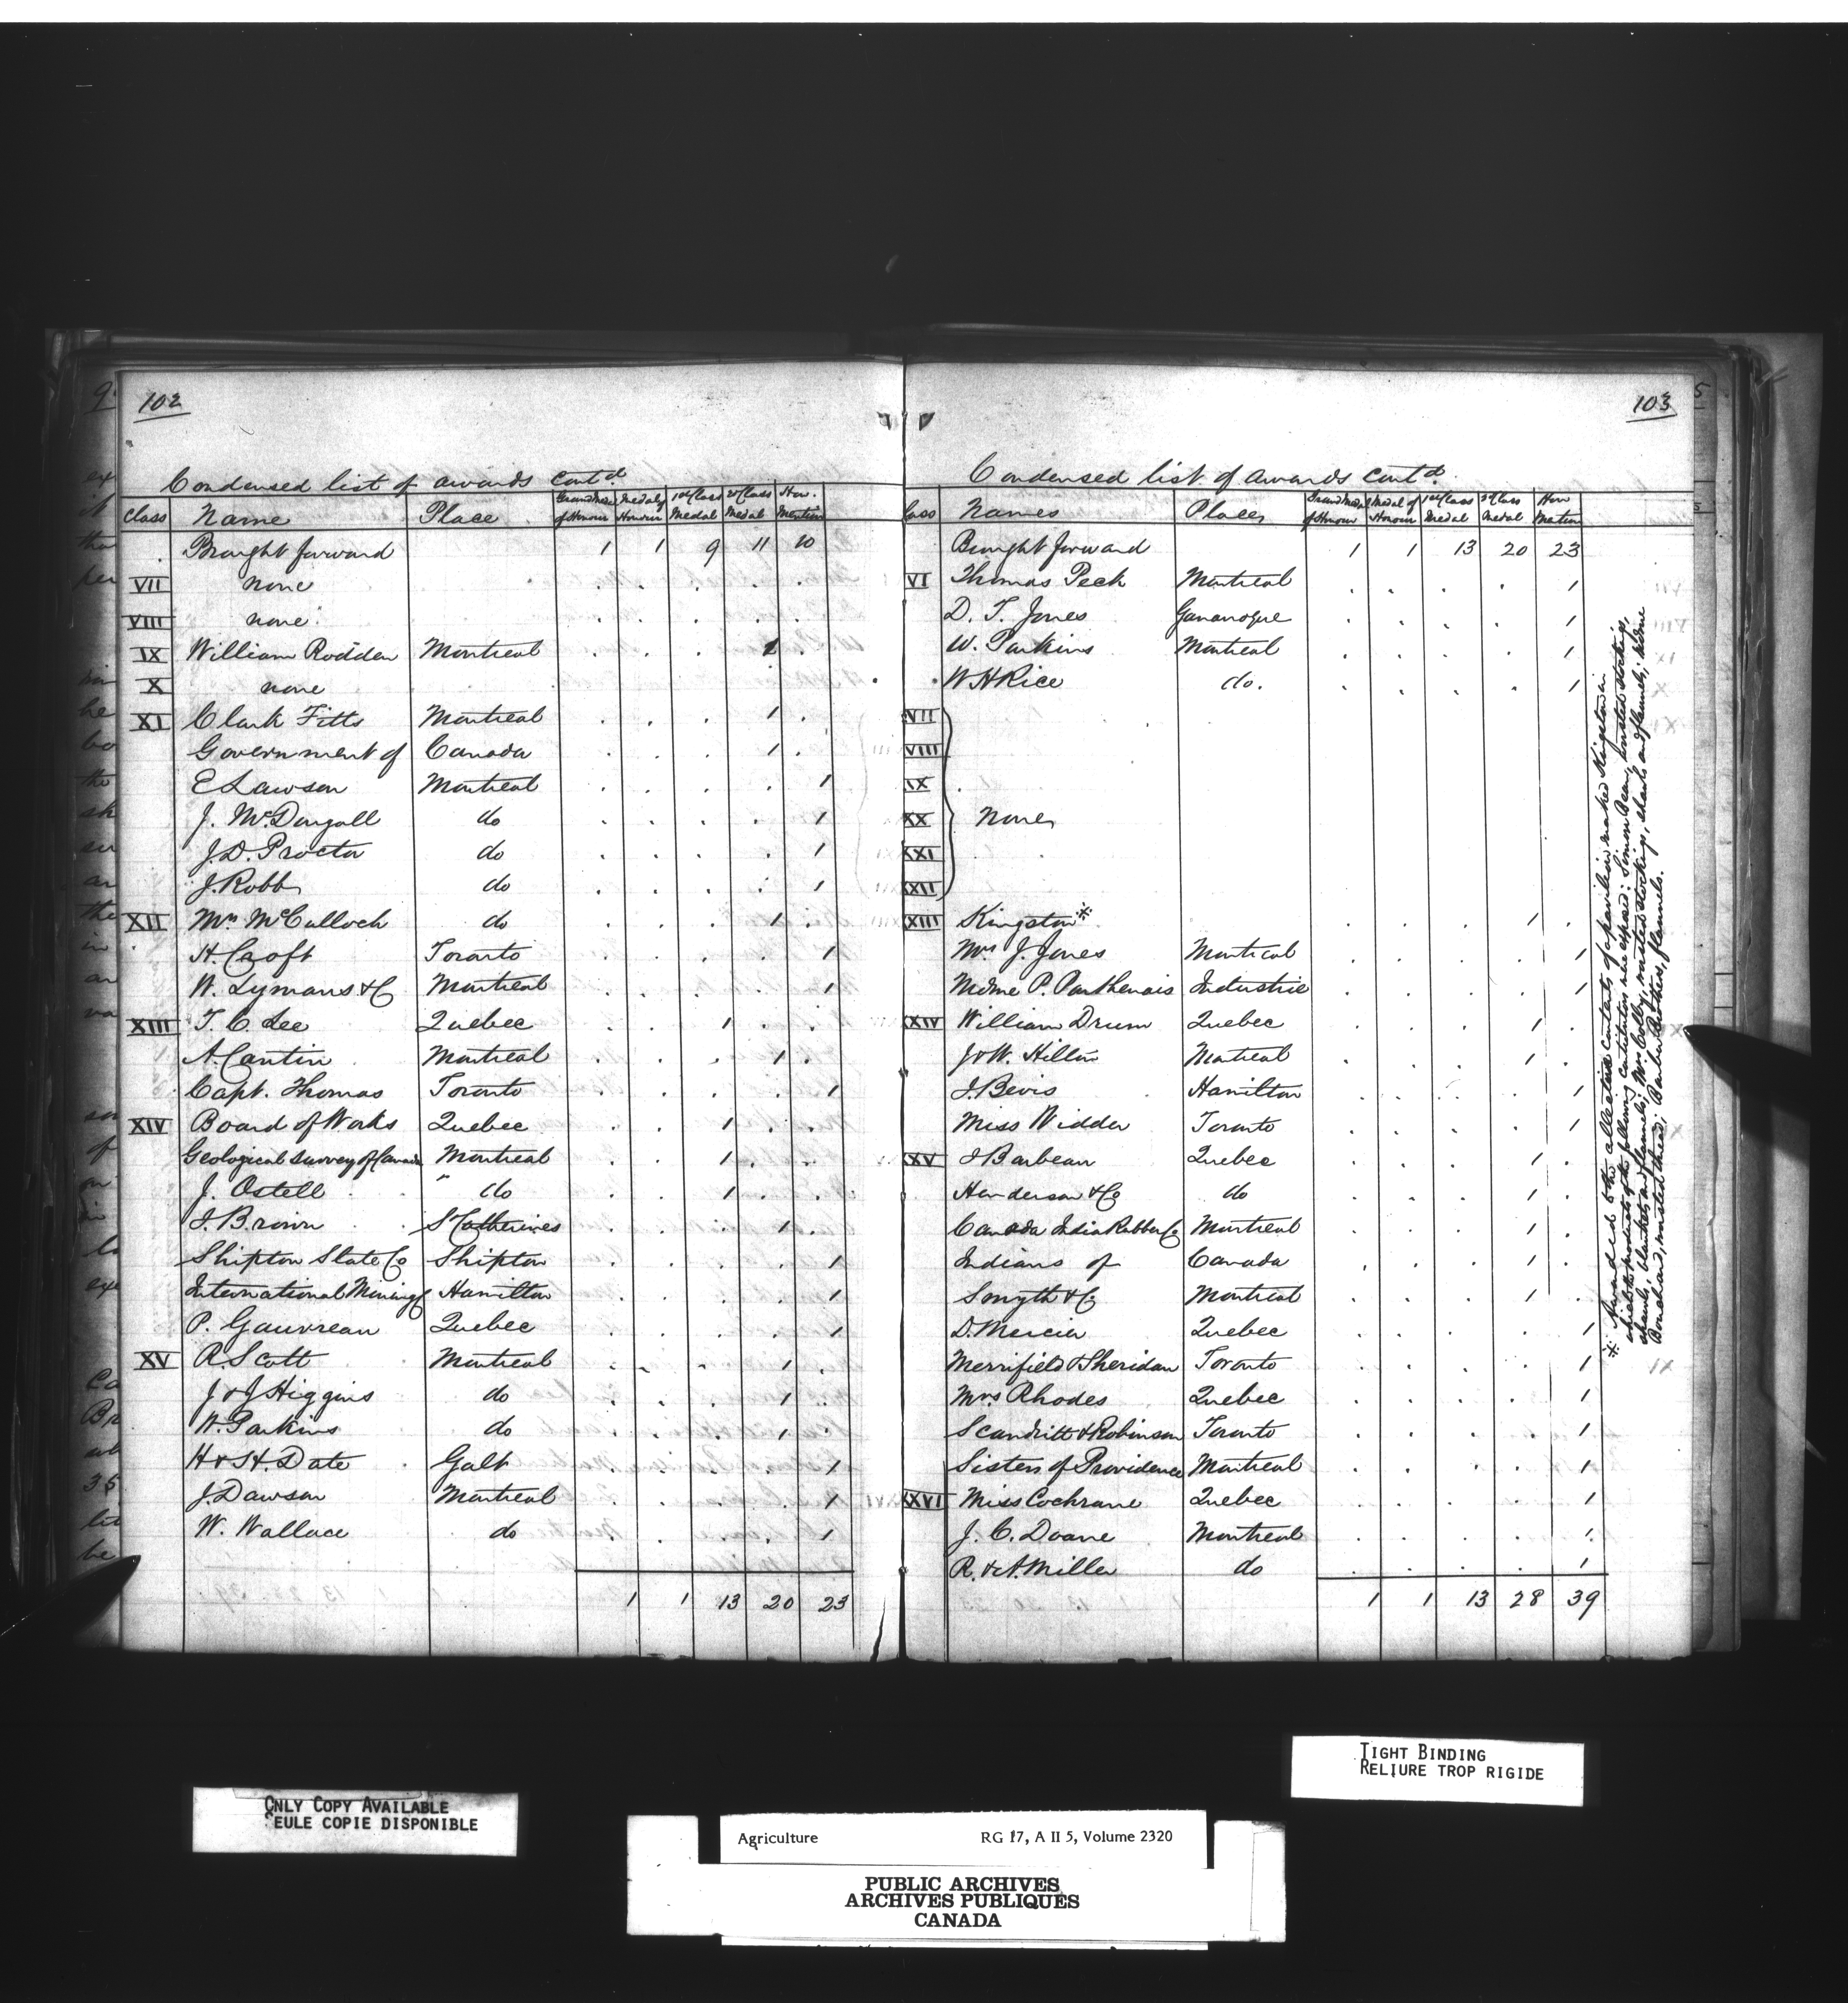 102
Condensed list of awards contd
Class Name Place Grand Medal of Honour Medal of Honour 1st Class Medal 2d Class Medal Hon. Mention
Brought forward 1 1 9 11 10
VII none
VIII none
IX William Rodden Montreal . . . 1 .
X none
XI Clark Fitts Montreal . . . 1 .
Government of Canada . . . 1 .
E Lawson Montreal . . . . 1
J. McDougall do . . . . 1
J. D. Proctor do . . . . 1
J. Robb do . . . . 1
XII Mrs McCulloch do . . . 1 .
H. Croft Toronto . . . . 1
W. Lymans & Co Montreal . . . . 1
XIII T. C. Lee Quebec . . 1 . .
A. Cantin Montreal . . . 1 .
Capt. Thomas Toronto . . . . 1
XIV Board of Works Quebec . . 1 . .
Geological Survey of Canada Montreal . . 1 . .
J. Ostell do . . 1 . .
J. Brown St Catherines . . . 1 .
Shipton Slate Co Shipton . . . . 1
International Mining Co Hamilton . . . . 1
P. Gauvreau Quebec . . . . 1
XV R. Scott Montreal . . . 1 .
J & J Higgins do . . . 1 .
W. Parkins do . . . 1 .
H & H. Date Galt . . . . 1
J. Dawson Montreal . . . . 1
W. Wallace do . . . . 1
1 1 13 20 23
103
Condensed list of awards contd.
Class Names Places Grand Medal of Honour Medal of Honour 1st Class Medal 2d Class Medal Hon Mention
Brought forward 1 1 13 20 23
VI Thomas Peck Montreal . . . . 1
D. T. Jones Gananoque . . . . 1
W. Parkins Montreal . . . . 1
W H Rice do. . . . . 1
VII
VIII
IX
XX None
XXI
XXII
XXIII Kingston* . . . 1 .
Mrs J. Jones Montreal . . . . 1
Mdme P. Parthenais Industrie . . . . 1
XXIV William Drum Quebec . . . 1 .
J & W. Hilton Montreal . . . 1 .
J. Bevis Hamilton . . . . 1
Miss Widder Toronto . . . . 1
XXV J Barbeau Quebec . . . 1 .
Henderson & Co do . . . 1 .
Canada India Rubber Co Montreal . . . 1 .
Indians of Canada . . . 1 .
Smyth & Co Montreal . . . 1 .
D. Mercier Quebec . . . . 1
Merrifield & Sheridan Toronto . . . . 1
Mrs Rhodes Quebec . . . . 1
Scandritt & Robinson Toronto . . . . 1
Sisters of Providence Montreal . . . . 1
XXVI Miss Cochrane Quebec . . . . 1
J. C. Doane Montreal . . . . 1
R. & A. Miller do . . . . 1
1 1 13 28 39
* Awarded to the collective contents of a pavilion marked Kingston in
which the products of the following contributors were exposed: Simon Bean, knitted stockings,
shawls, blankets and flannels; Mrs Colby, knitted stockings, shawls and flannels; Mdme
Bouchard, twisted thread; Barber Brothers, flannels.
ONLY COPY AVAILABLE
SEULE COPIE DISPONIBLE
TIGHT BINDING
RELIURE TROP RIGIDE
Agriculture RG 17, A II 5, Volume 2320
PUBLIC ARCHIVES
ARCHIVES PUBLIQUES
CANADA